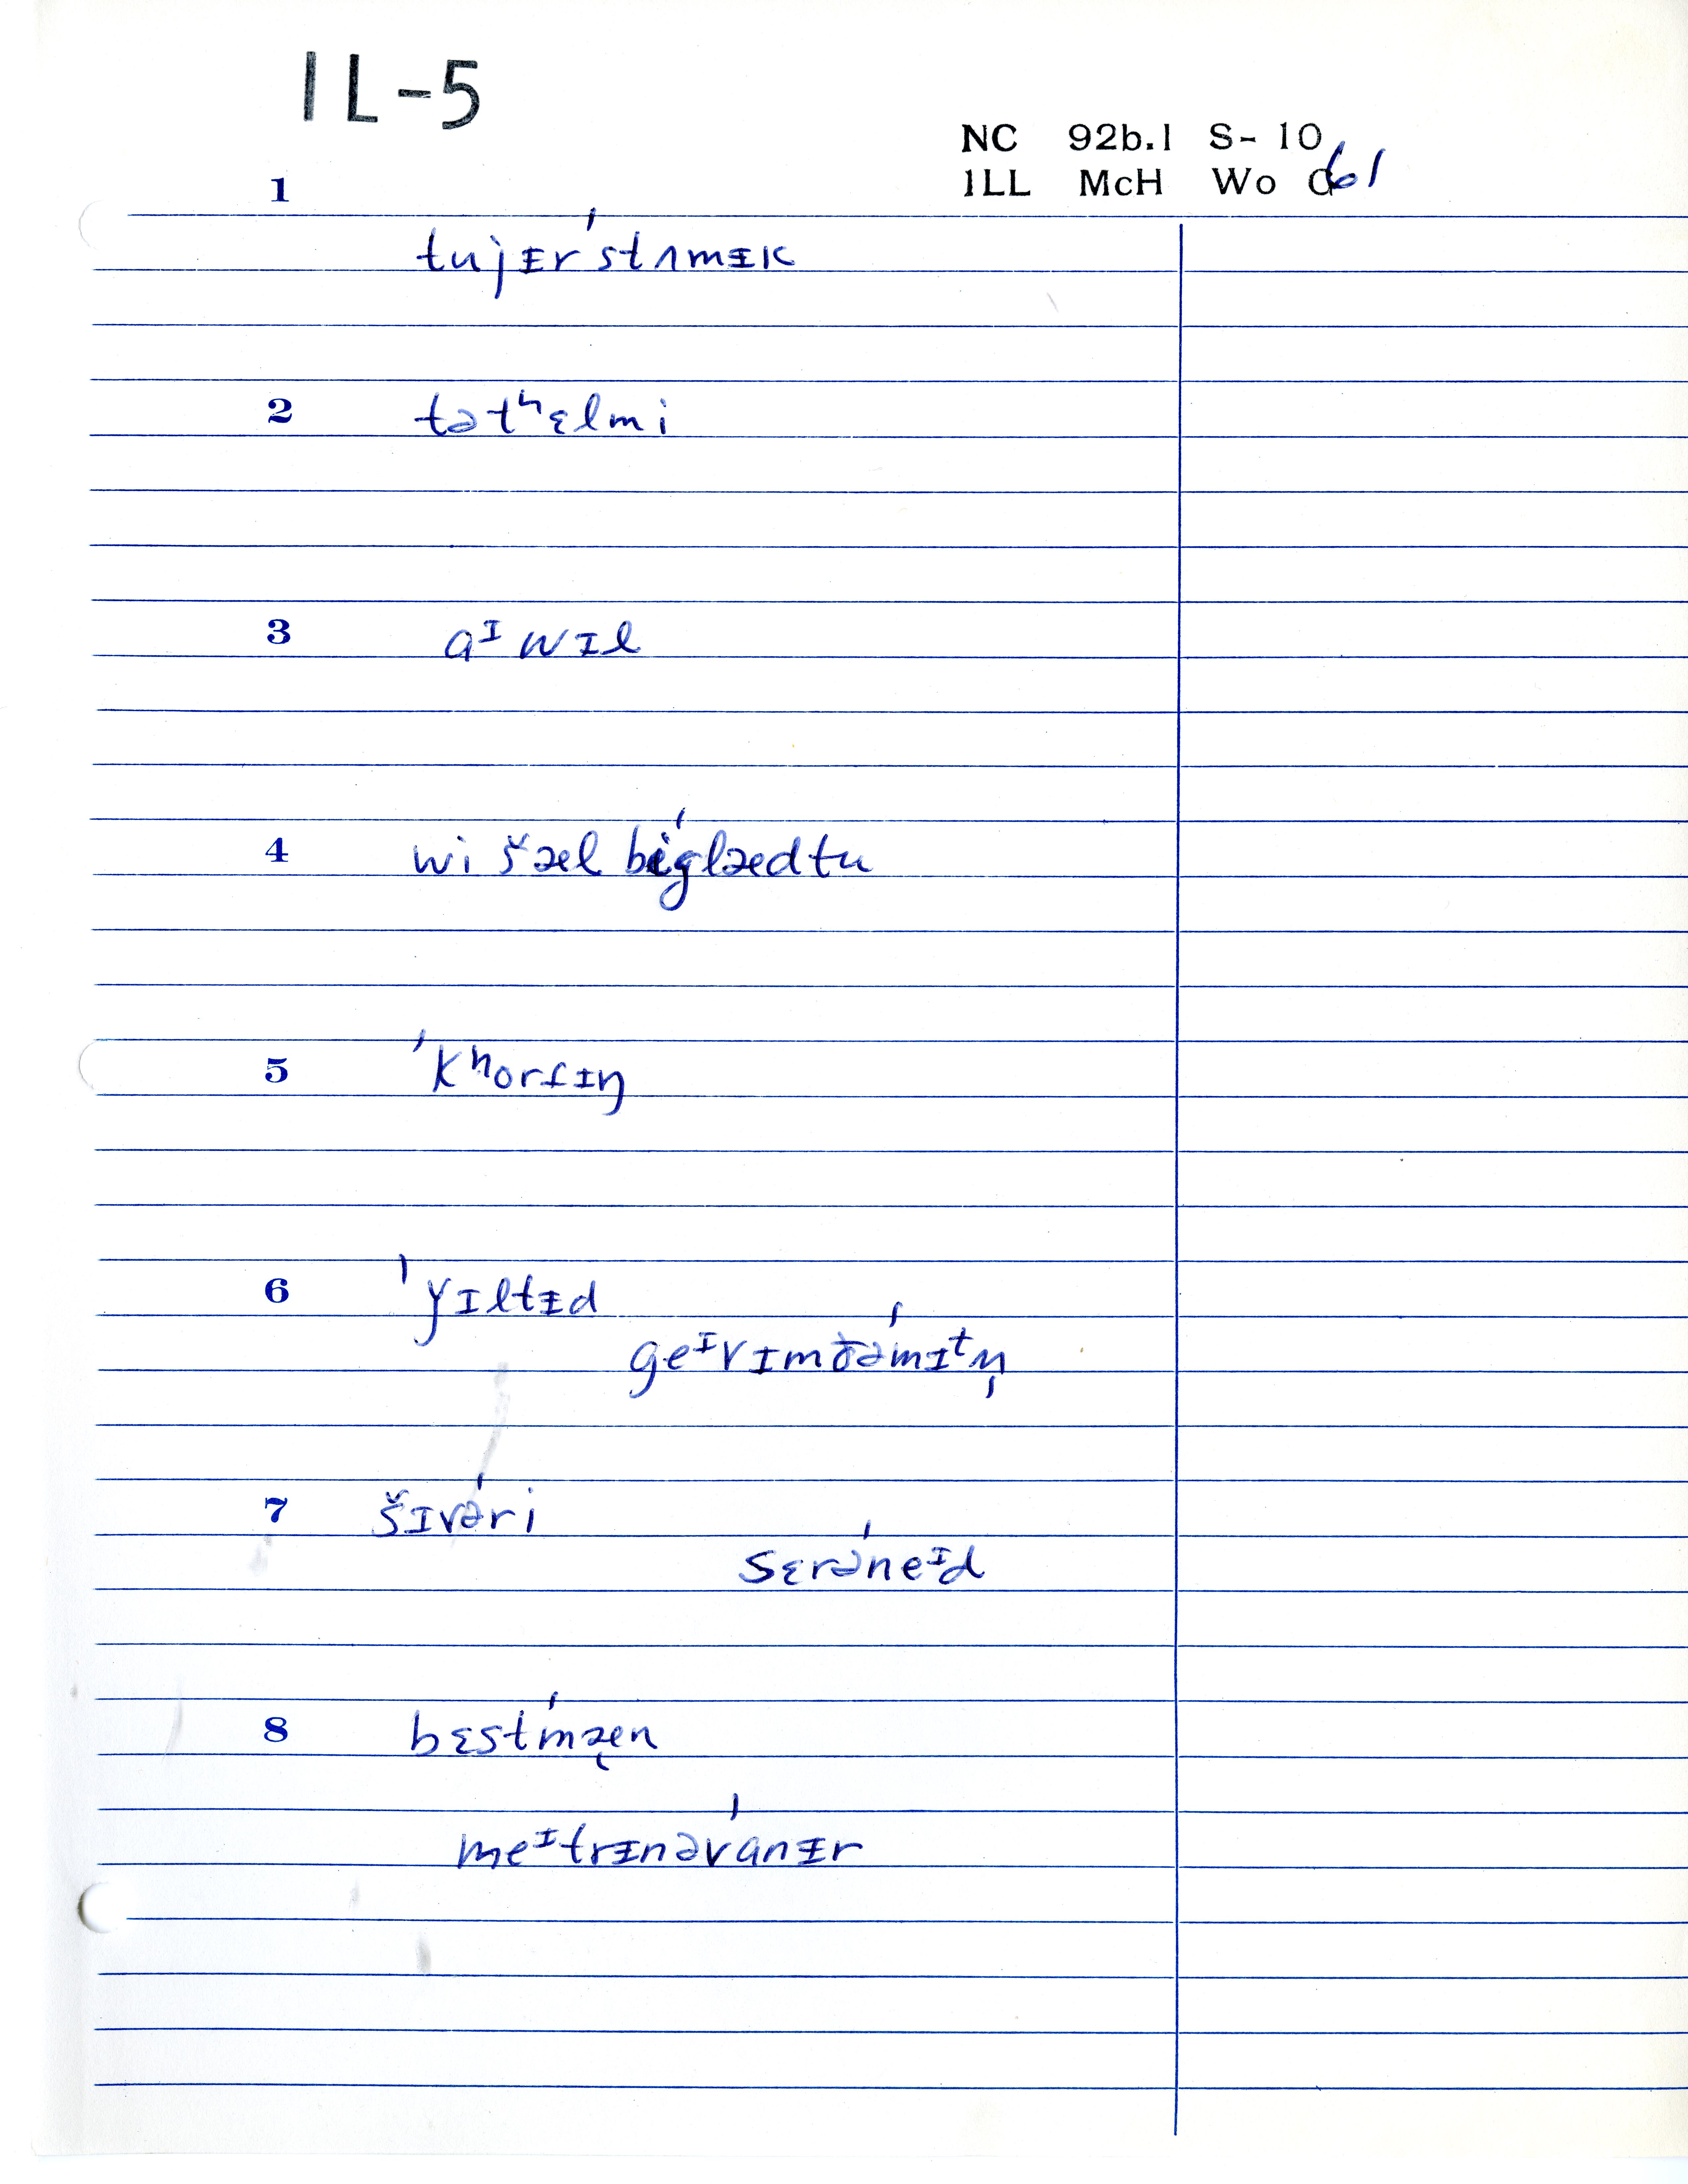 IL-5
NC 92b.1 S-10
ILL McH Wo C61
1
tujᵻr ˈstʌmᵻk
2
tətʰɛlmi
3
aᴵ wɪl
4
wi šæl bi ˈglædtu
5
ˈkʰorfɪŋ
6
ˈyɪltᵻd
geᴵvɪmðəmɪᵗn̩
7
šɪvəri
sɛrəneᴵd
8
bɛstmæn
meᴵtrᵻnəvanᵻr